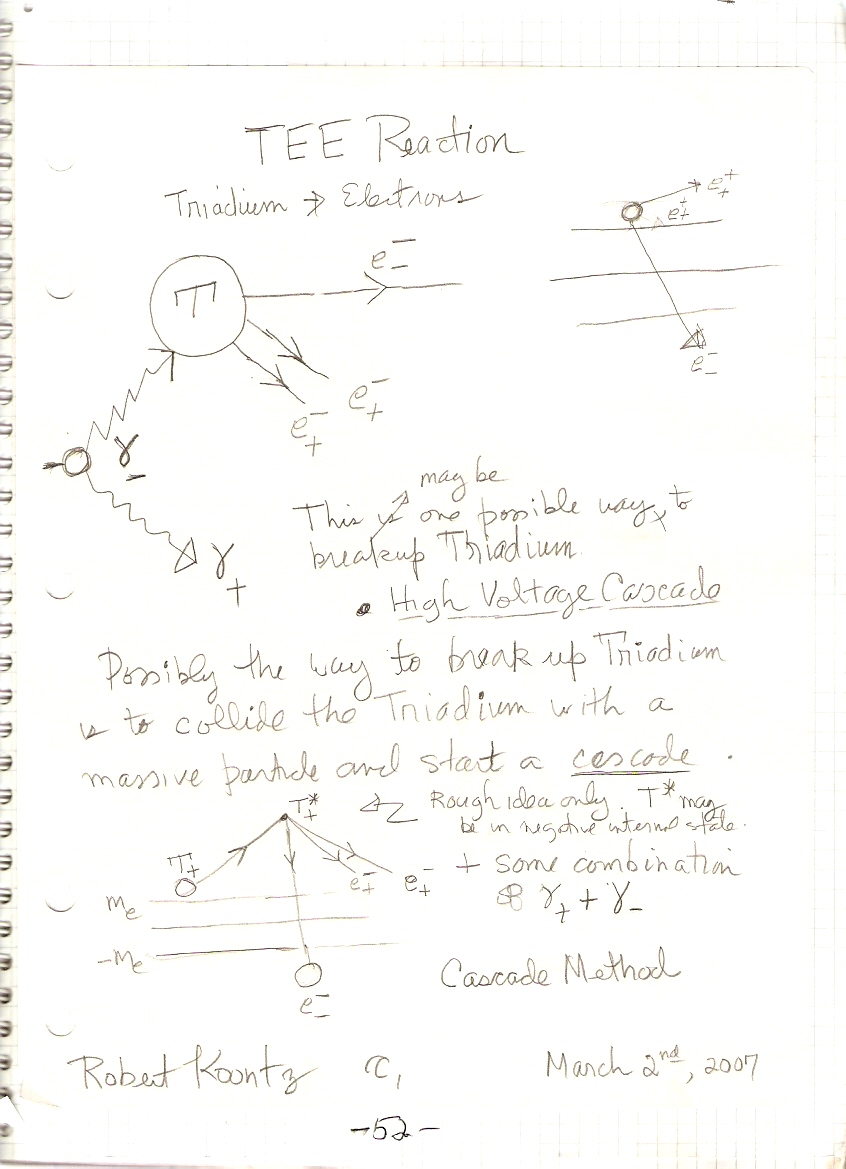 TEE Reaction
Triadium → Electrons
e⁺₊
e⁺₊
e⁻₋
T
e⁻₋
e⁻₊
e⁻₊
γ₋
γ₊
may be
This is one possible way, to
breakup Triadium
• High Voltage Cascade
Possibly the way to break up Triadium
is to collide the Triadium with a
massive particle and start a cascade.
T*₊
Rough idea only. T* may
be in negative internal state.
T₊
e⁻₊
e⁻₊
+ some combination
γ₊ + γ₋
mₑ
-mₑ
e⁻₋
Cascade Method
Robert Koontz
March 2nd, 2007
-52-